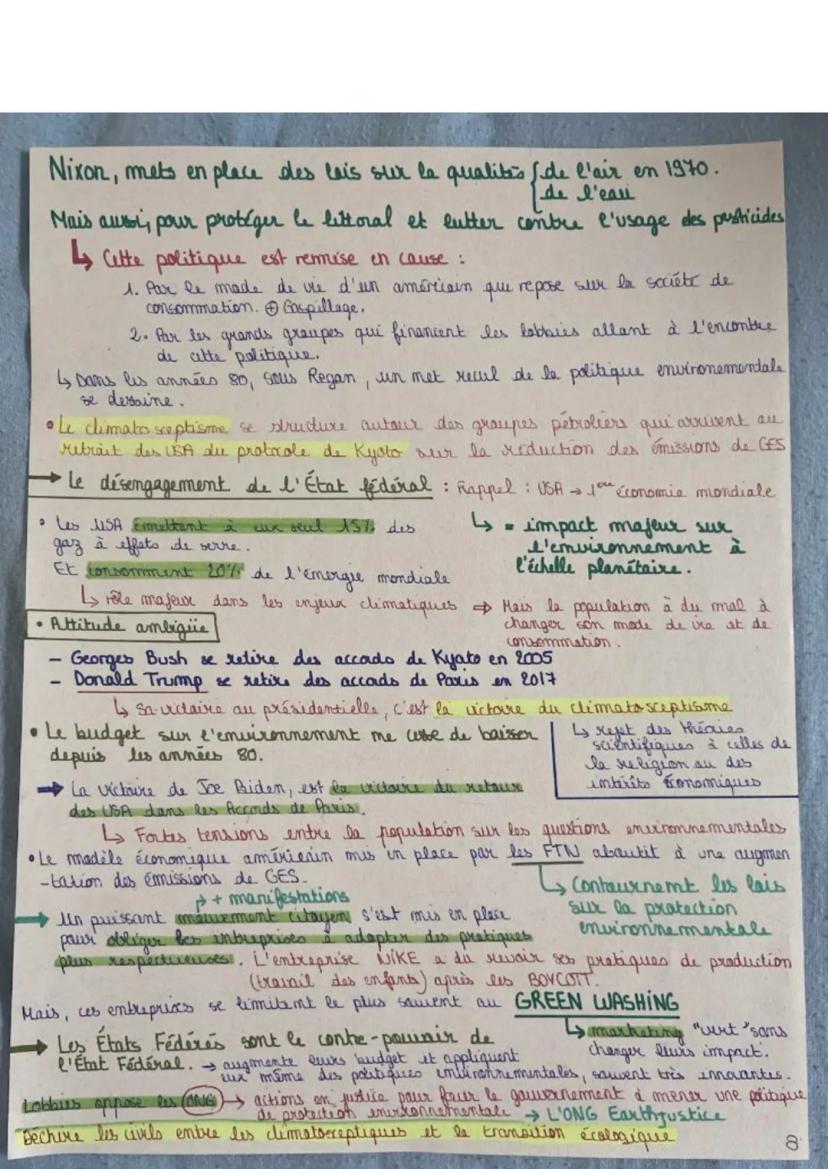 Nixon, mets en place des lois sur la qualités { de l'air en 1970.
de l'eau
Mais aussi, pour protéger le littoral et lutter contre l'usage des pesticides
↳ Cette politique est remise en cause :
1. Par le mode de vie d'un américain que repose sur la société de
consommation. ⊕ Gaspillage.
2. Par les grands groupes qui financent les lobbies allant à l'encontre
de cette politique.
↳ Dans les années 80, sous Regan, un net recul de la politique environementale
se dessine.
• Le climatosceptisme se structure autour des groupes pétroliers qui arrivent au
retrait des USA du protocole de Kyoto sur la réduction des émissions de GES
→ Le désengagement de l'État fédéral : Rappel : USA → 1ère économie mondiale
• Les USA émettent à eux seul 15% des
gaz à effets de serre.
↳ = impact majeur sur
l'environnement à
l'échelle planétaire.
Et consomment 20% de l'énergie mondiale
↳ rôle majeur dans les enjeux climatiques ⇒ Mais la population à du mal à
changer son mode de vie et de
consommation.
• Attitude ambigüe
- Georges Bush se retire des accords de Kyoto en 2005
- Donald Trump se retire des accords de Paris en 2017
↳ Sa victoire au présidentielle, c'est la victoire du climatosceptisme
↳ rejet des théories
scientifiques à celles de
la religion ou des
intérêts économiques
• Le budget sur l'environnement ne cesse de baisser
depuis les années 80.
→ La victoire de Joe Biden, est la victoire du retour
des USA dans les Accords de Paris.
↳ Fortes tensions entre la population sur les questions environnementales
• Le modèle économique américain mis en place par les FTN aboutit à une augmen
-tation des émissions de GES.
↳ Contournemt les lois
sur la protection
environnementale
+ manifestations
→ Un puissant mouvement citoyen s'est mis en place
pour obliger les entreprises à adapter des pratiques
plus respectueuses. L'entreprise NIKE a du revoir ses pratiques de production
(travail des enfants) après les BOYCOTT.
Mais, ces entreprises se limitent le plus souvent au GREEN WASHING
↳ marketing "vert" sans
changer leurs impact.
→ Les États Fédérés sont le contre-pouvoir de
l'État Fédéral. → augmente leurs budget et appliquent
eux même des politiques environnementales, souvent très innovantes.
Lobbies oppose les ONG → actions en justice pour forcer le gouvernement à mener une politique
de protection environnementale → L'ONG Earthjustice
Déchire les civils entre les climatosceptiques et la transition écologique
8